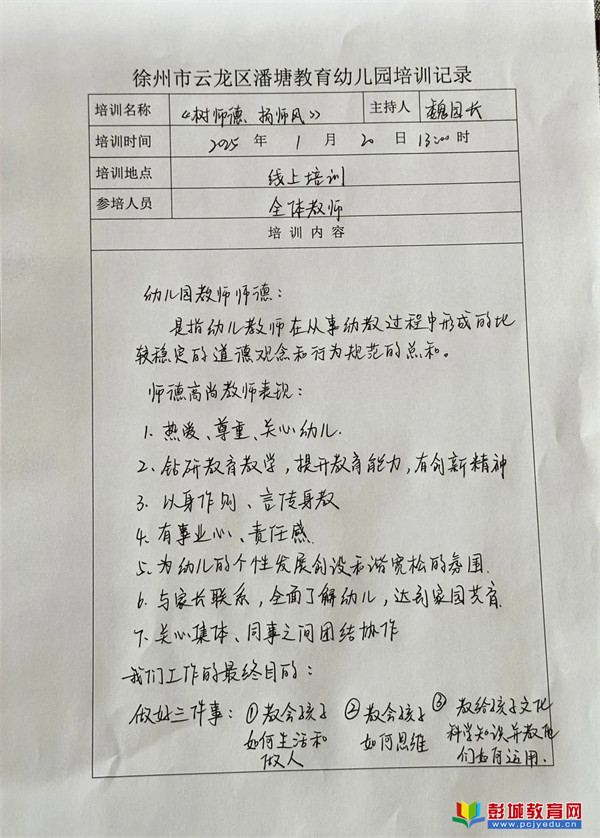 徐州市云龙区潘塘教育幼儿园培训记录
培训名称 《树师德、扬师风》 主持人 魏园长
培训时间 2025 年 1 月 20 日 13:00 时
培训地点 线上培训
参培人员 全体教师
培 训 内 容
幼儿园教师师德：
是指幼儿教师在从事幼教过程中形成的比
较稳定的道德观念和行为规范的总和。
师德高尚教师表现：
1. 热爱、尊重、关心幼儿.
2. 钻研教育教学，提升教育能力，有创新精神
3. 以身作则、言传身教
4. 有事业心、责任感.
5. 为幼儿的个性发展创设和谐宽松的氛围.
6. 与家长联系，全面了解幼儿，达到家园共育.
7. 关心集体、同事之间团结协作
我们工作的最终目的：
做好三件事： ①教会孩子 ②教会孩子 ③ 教给孩子文化
如何生活和 如何思维 科学知识并教他
做人 们如何运用.
彭城教育网
www.pcjyedu.cn